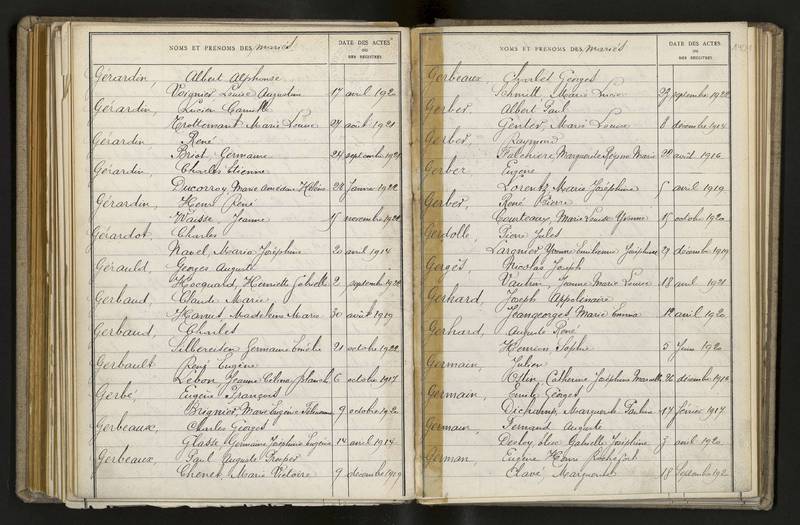 NOMS ET PRÉNOMS DES mariés
DATE DES ACTES
OU
DES REGISTRES
Gérardin, Albert Alphonse
Voignier Louise Augustine 17 avril 1920
Gérardin Lucien Camille
Trottemant Marie Louise 27 août 1921
Gérardin, René
Brot, Germaine 24 septembre 1921
Gérardin, Charles Etienne
Ducorroy Marie Hélène 28 Janvier 1922
Gérardin, Henri René
Waisse Jeanne 15 novembre 1922
Gérardot, Charles
Navel, Marie Joséphine 20 avril 1914
Gérauld, Georges Auguste
Hocquard, Henriette Gabrielle 2 septembre 1920
Gerbaud, Claude Marie
Harret, Madeleine Marie 30 août 1919
Gerbaud, Charles
Silbereisen Germaine Emélie 21 octobre 1922
Gerbault René Eugène
Lebon Jeanne Célina Blanche 6 octobre 1917
Gerbé, Eugène François
Brignier, Marie Eugénie Philomène 9 octobre 1920
Gerbeaux, Charles Georges
Glasse Germaine Joséphine Eugénie 14 avril 1914
Gerbeaux, Paul Auguste Prosper
Chenet, Marie Victoire 9 décembre 1919
NOMS ET PRÉNOMS DES mariés
DATE DES ACTES
OU
DES REGISTRES
Gerbeaux, Charles Georges
Schmitt, Marie Lucie 23 septembre 1922
Gerber Albert Paul
Gentier, Marie Louise 8 décembre 1914
Gerber, Raymond
Falchiere, Marguerite Regina Marie 28 août 1916
Gerber Eugène
Lorentz Marie Joséphine 5 avril 1919
Gerber, René Pierre
Courteaux, Marie Louise Yvonne 15 octobre 1920
Gerdolle Pierre Jules
Largnier Yvonne Emilienne Joséphine 29 décembre 1919
Gergès Nicolas Joseph
Vautrin, Jeanne Marie Louise 18 avril 1921
Gerhard, Joseph Appolinaire
Jeangeorges, Marie Emma 12 avril 1920
Gerhard, Auguste René
Henrion, Sophie 5 Juin 1920
Germain, Julien
Catherine Joséphine 26 décembre 1916
Germain, Emile Georges
Dichamp, Marguerite Pauline 17 février 1917
Germain, Fernand Auguste
Gabrielle Joséphine 3 avril 1920
German, Eugène Henri Rochefort
Clavé, Marguerite 18 septembre 192